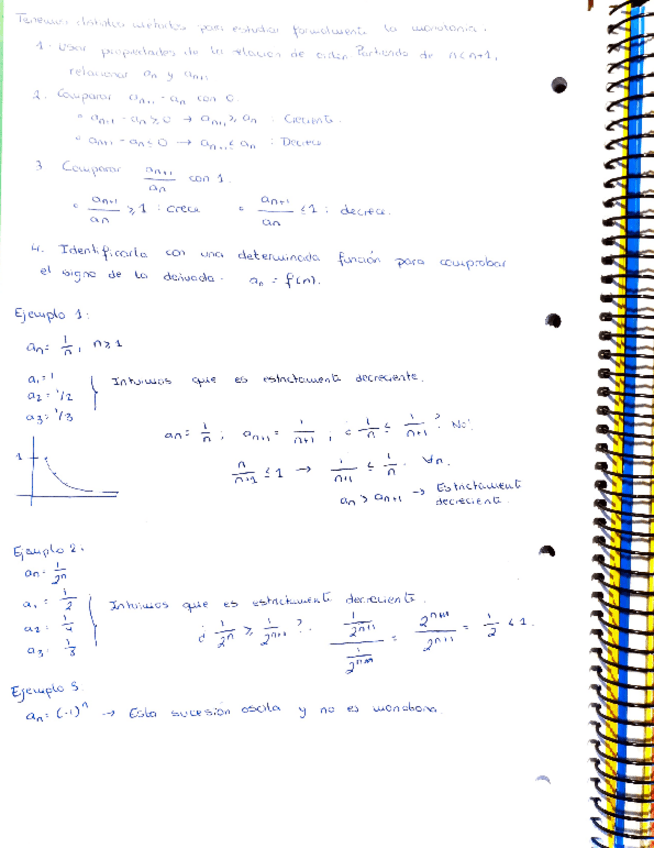 Tenemos distintos métodos para estudiar formalmente la monotonía.
1. Usar propiedades de la relación de orden. Partiendo de n<n+1,
relacionar an y an+1
2. Comparar an+1 - an con 0.
• an+1 - an ≥ 0 → an+1 ≥ an : Creciente.
• an+1 - an ≤ 0 → an+1 ≤ an : Decrece
3 Comparar an+1/an con 1.
• an+1/an ≥ 1 : crece • an+1/an ≤ 1 : decrece.
4. Identificarla con una determinada función para comprobar
el signo de la derivada. an = f(n).
Ejemplo 1:
an = 1/n, n≥1
a1 = 1
a2 = 1/2 } Intuimos que es estrictamente decreciente.
a3 = 1/3
an = 1/n ; an+1 = 1/n+1 ; ¿ 1/n ≤ 1/n+1 ? No.
1
n/n+1 ≤ 1 → 1/n+1 ≤ 1/n . ∀n.
an > an+1 → Estrictamente
decreciente.
Ejemplo 2.
an = 1/2^n
a1 = 1/2
a2 = 1/4 } Intuimos que es estrictamente decreciente.
a3 = 1/3
¿ 1/2^n ≥ 1/2^n+1 ?. = = 1/2 < 1.
Ejemplo 3.
an = (-1)^n → Esta sucesión oscila y no es monótona.